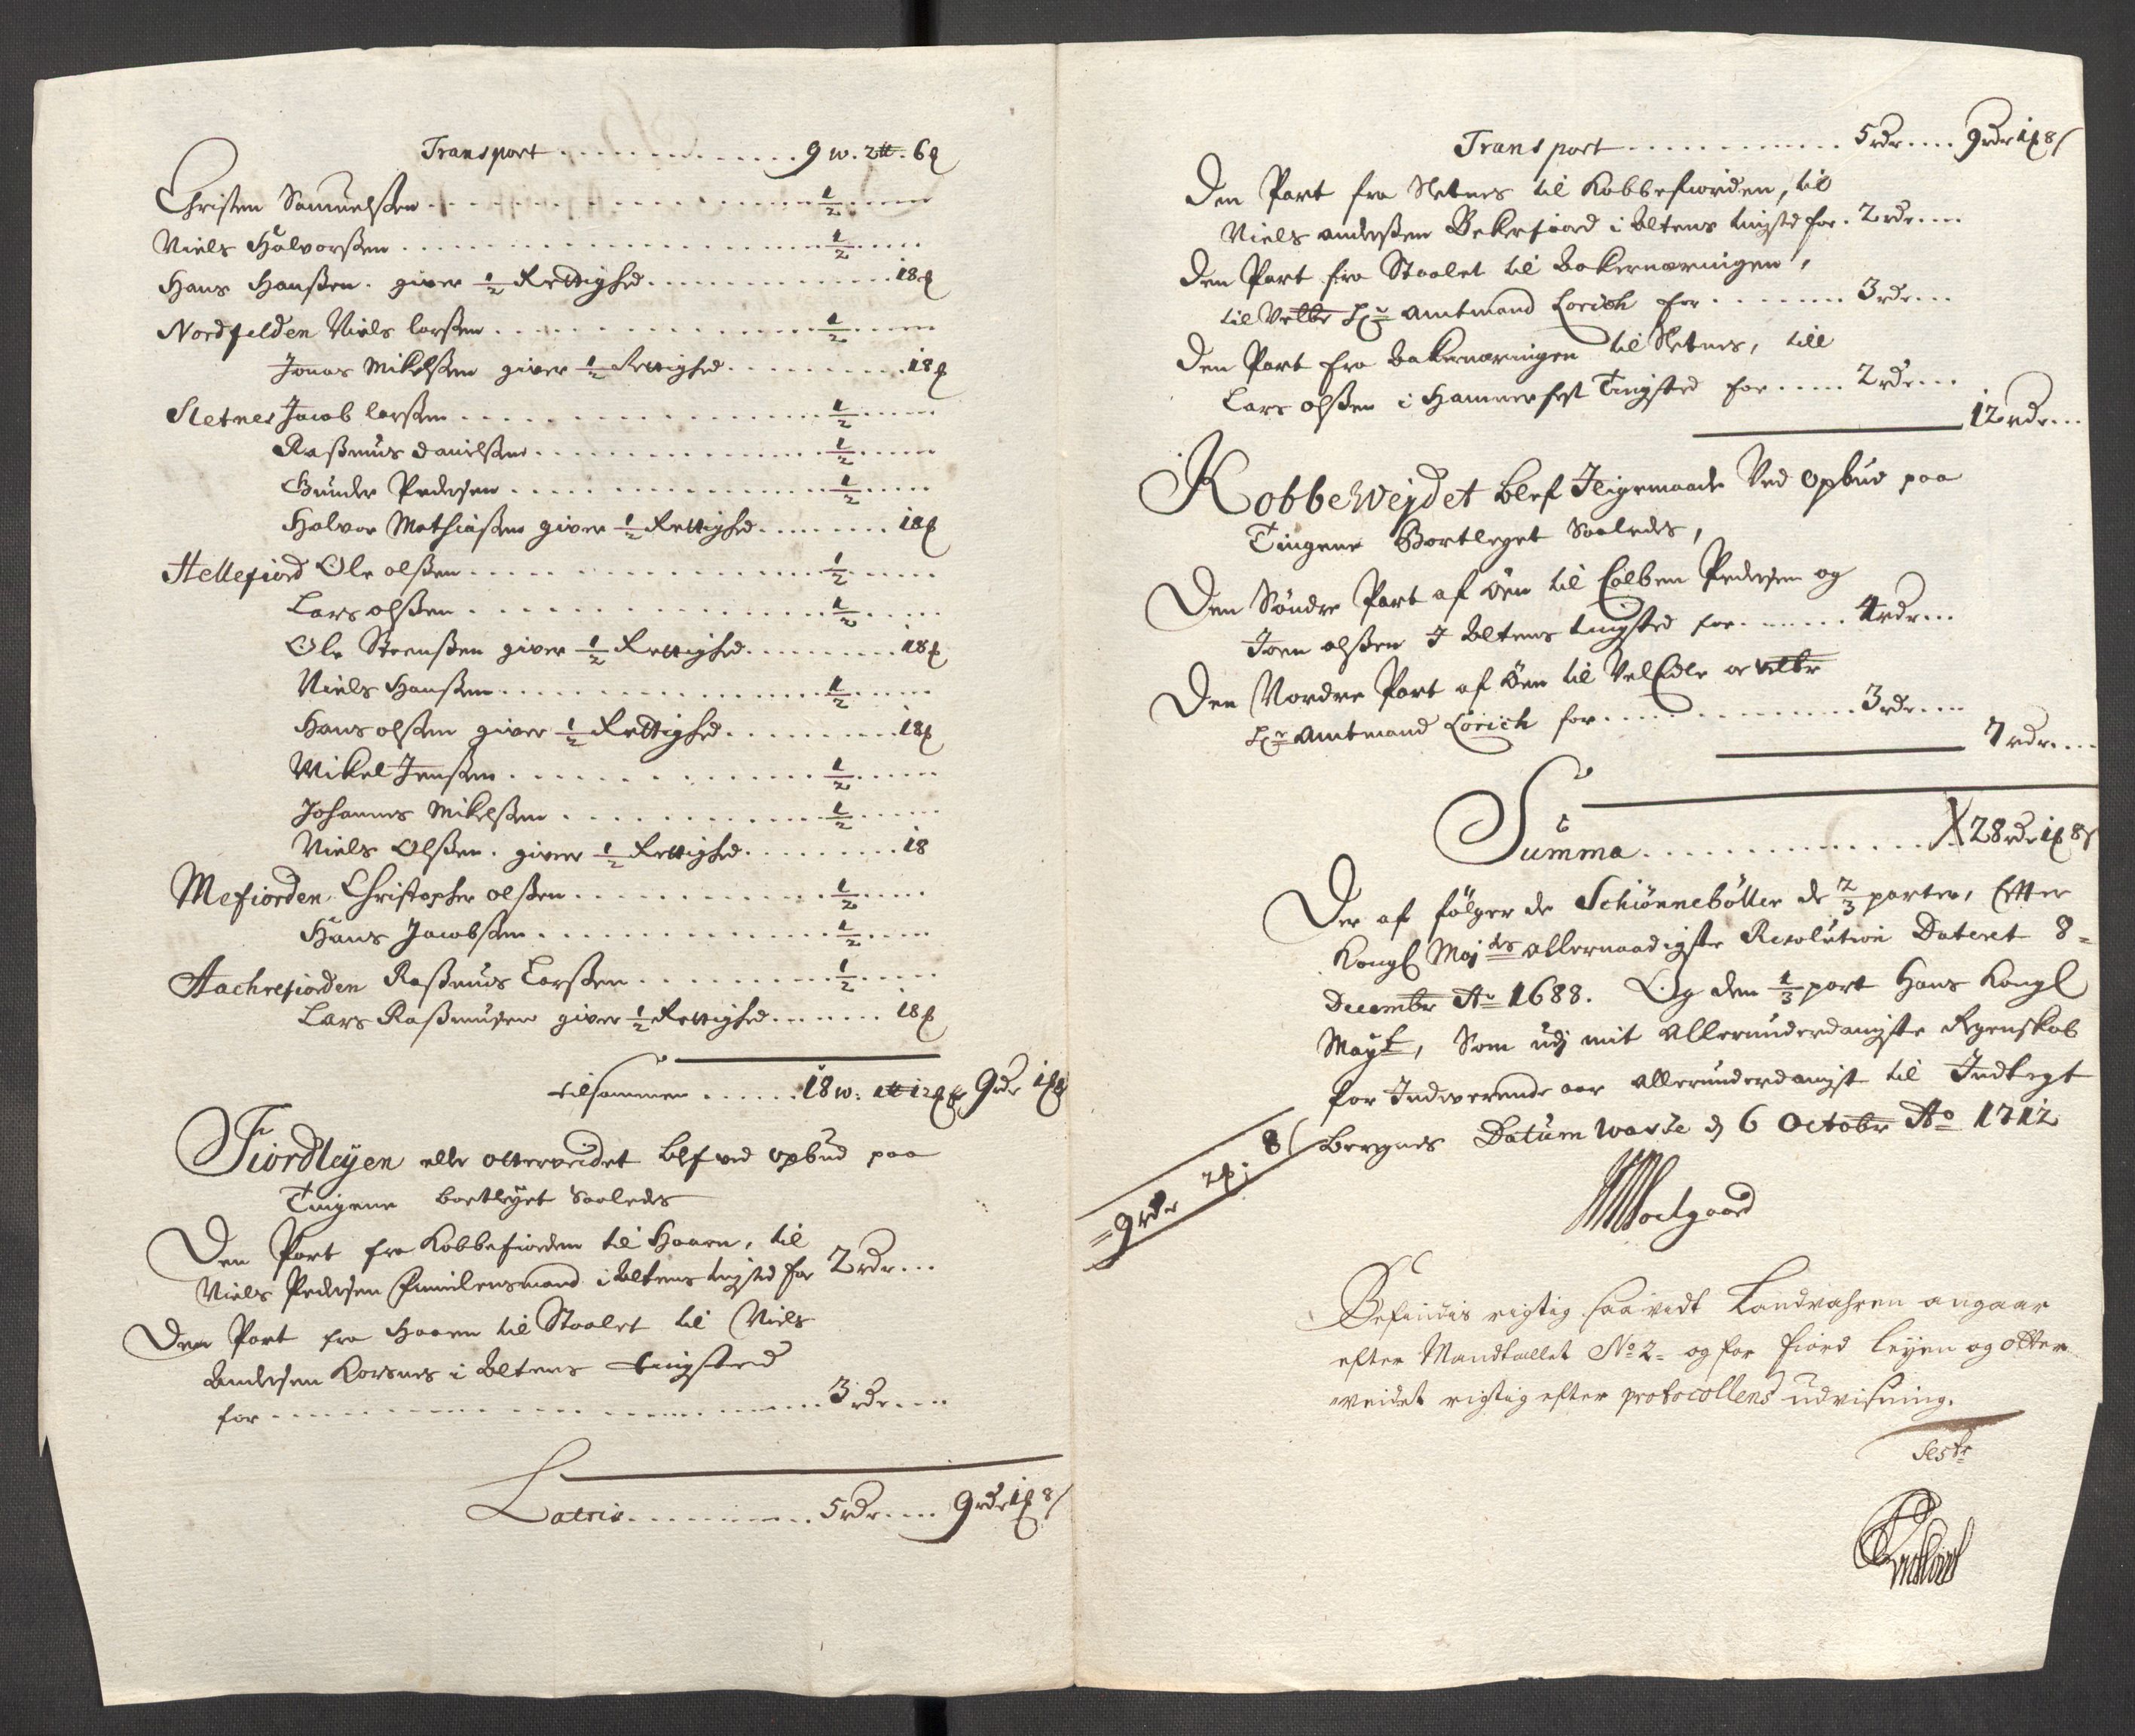 Transport . . . . 9 w. 2 ℔. 6 ß
Christen Samuelßen . . . . ½ . . .
Niels Halvorßen . . . . ½ . . .
Hans Hanßen. giver ½ Rettighed . . . . 18 ß
Nordfelden Niels Larßen . . . . ½ . . .
Jonas Mikelßen giver ½ Rettighed . . . . 18 ß
Sletnes Jacob Larßen . . . . ½ . . .
Raßmus Danielßen . . . . ½ . . .
Gunder Pedersen . . . . ½ . . .
Halvor Mathiaßen giver ½ Rettighed . . . . 18 ß
Hellefiord Ole Olßen . . . . ½ . . .
Lars Olßen . . . . ½ . . .
Ole Steenßen giver ½ Rettighed . . . . 18 ß
Niels Hanßen . . . . ½ . . .
Hans Olßen giver ½ Rettighed . . . . 18 ß
Mikel Jenßen . . . . ½ . . .
Johannes Mikelßen . . . . ½ . . .
Niels Olßen. giver ½ Rettighed . . . . 18
Mefiorden Christopher Olßen . . . . ½ . . .
Hans Jacobßen . . . . ½ . . .
Aachrefiorden Raßmus Larßen . . . . ½ . . .
Lars Raßmusen giver ½ Rettighed . . . . 18 ß
tilsammen . . . . 18 w: 1 ℔ 12 ß er 9 rdr 1 ß 8
Fiordleyen eller otterveidet blef ved opbud paa
Tingene bortleyet Saaledes
Den Part fra Kobbefiorden til Haaen, til
Niels Pedersen i Altens tingsted for 2 rdr . . .
Den Part fra Haaen til Staalet til Niels
Andersen Korsnes i Altens tingsted
for . . . . 3 rdr . . .
Lateris . . . . 5 rdr . . . 9 rdr 1 ß 8 s
Transport . . . . 5 rdr . . . 9 rdr 1 ß 8 s
Den Part fra Sletnes til Kobbefiorden, til
Niels Anderßen Bekerfiord i Altens tingsted for . 2 rdr . . .
Den Part fra Staalet til Bakernæringen,
til Velbr Hr Amtmand Lorich for . . . . 3 rdr . . .
Den Part fra Bakernæringen til Sletnes, till
Lars Olßen i Hammerfest Tingsted for . . . 2 rdr . . .
12 rdr . . .
Kobbeweydet blef Ligemaade Ved opbud paa
Tingene Bortleyet Saaledes,
Den Söndre Part af Öen til Colben Pedersen og
Joen Olßen I Altens tingsted for . . . . 4 rdr . . .
Den Nordre Part af Öen til VelEdle og velbr
Hr Amtmand Lorich for . . . . 3 rdr . . .
7 rdr . . .
Summa . . . . 28 rdr 1 ß 8 s
Der af fölger de Schiønnebøller de ⅔ parter, Efter
Kongl Majts allernaadigste Resolution Dateret 8=
Decembr Ao 1688. Og den ⅓ part Hans Kongl
Mayt, Som udj mit Allerunderdanigste Regenskab
for Indeværende aar allerunderdanigst til Indtegt
beregnes Datum Wardø d 6 Octobr Ao 1712
= 9 rdr 2 ß; 8 s
Befindis rigtig saavidt Landvahren angaar
efter Mandtallet No 2= og for fiord leyen og otter
weidet rigtig efter protocollens udvisning.